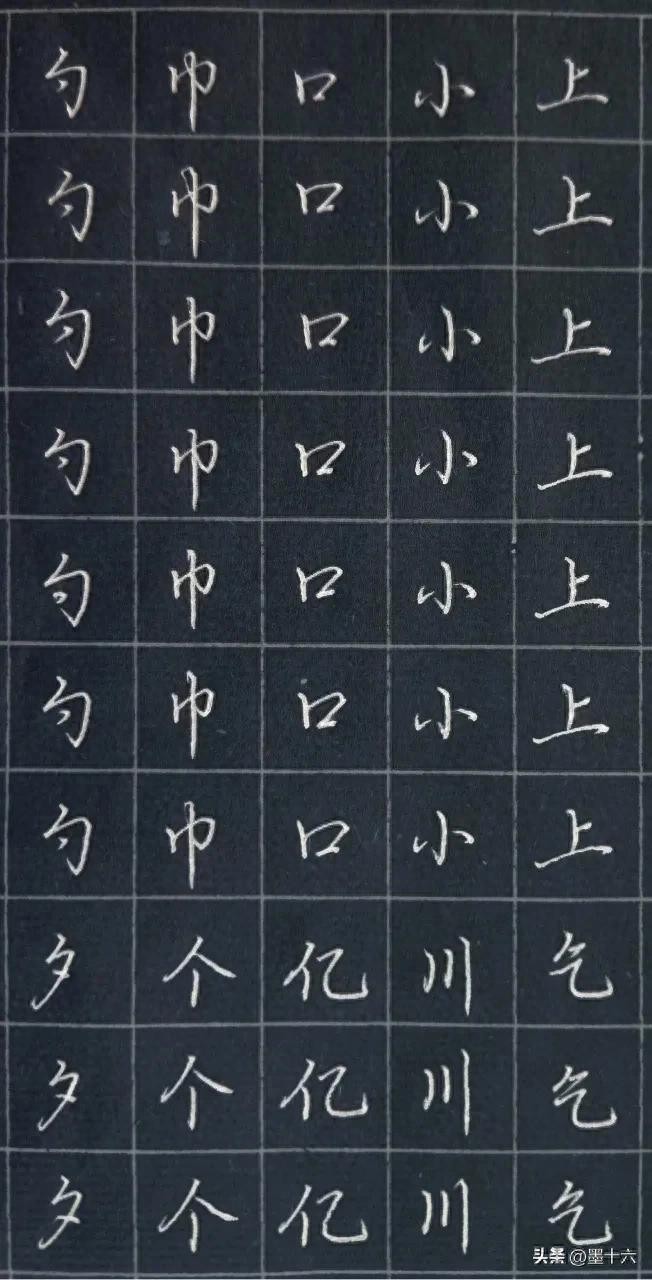 勺 巾 口 小 上
勺 巾 口 小 上
勺 巾 口 小 上
勺 巾 口 小 上
勺 巾 口 小 上
勺 巾 口 小 上
勺 巾 口 小 上
夕 个 亿 川 乞
夕 个 亿 川 乞
夕 个 亿 川 乞
头条 @墨十六